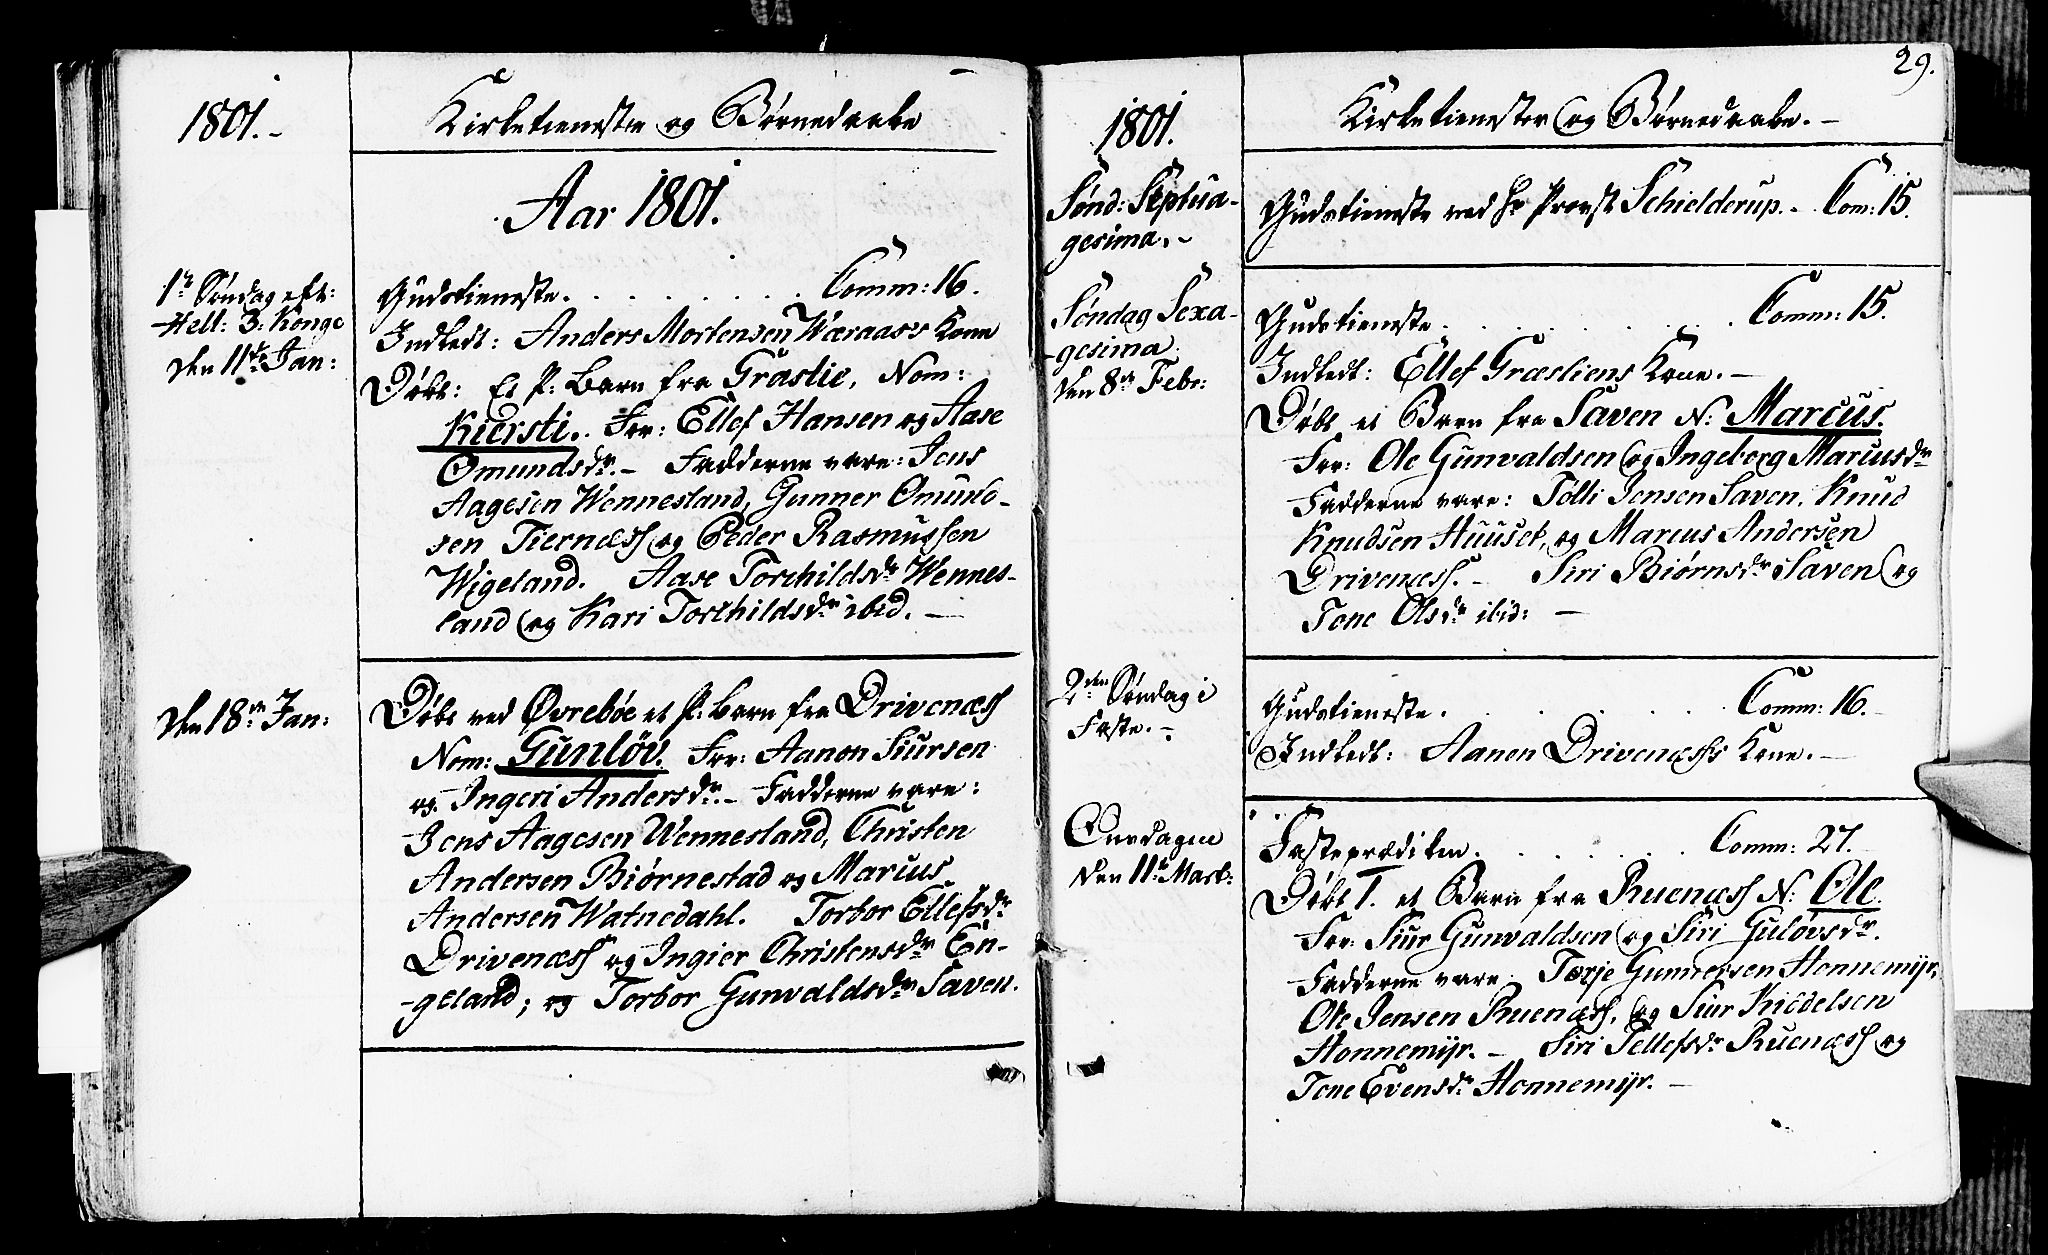 1801.-
Kirketieneste og Børnedaabe
Aar 1801.
1te Søndag eft:
Hell: 3: Konge
den 11te Jan:
Gudstieneste. . . . . . . . Comm: 16.
Indledt: Anders Mortensen Wæraas's Kone
Døbt: Et P: Barn fra Græslie, Nom:
Kiersti. For: Ellef Hansen og Aase
Omundsdr. - Fadderne vare: Jens
Aagesen Wennesland, Gunner Omund-
sen Tiernæss og Peder Rasmussen
Wigeland. Aase Torchildsdr Wennes-
land og Kari Torchildsdr ibid. -
den 18de Jan:
Døbt ved Øvrebøe et P: Barn fra Drivenæss
Nom: Gunløv. For: Aanon Siursen
og Ingeri Andersdr. - Fadderne vare:
Jens Aagesen Wennesland, Christen
Andersen Biørnestad og Marius
Andersen Watnedahl. Torbor Ellefsdr
Drivenæss og Ingier Christensdr En-
geland; og Torbor Gunvaldsdr Saven.
29.
1801.
Kirketienester og Børnedaabe. -
Sønd: Septua-
gesima. -
Gudstieneste ved Hr Provst Schielderup. - Com: 15.
Søndag Sexa-
gesima
den 8de Febr:
Gudstieneste. . . . . . . . . Comm: 15.
Indledt: Ellef Græsliens Kone. -
Døbt et Barn fra Saven N: Marcus.
For: Ole Gunvaldsen og Ingeborg Marcusdr
Fadderne vare: Tølli Jensen Saven, Knud
Knudsen Huuset, og Marcus Andersen
Drivenæss. - Siri Biørnsdr Saven og
Tone Olsdr ibid: -
2den Søndag i
Faste. -
Gudstieneste. . . . . . . Comm: 16.
Indledt: Aanen Drivenæss's Kone. -
Onsdagen
den 11te Mart:
Fasteprædiken. . . . . . . Comm: 27.
Døbt 1. et Barn fra Ruenæss N: Ole.
For: Siur Gunvaldsen og Siri Guløvsdr.
Fadderne vare: Terje Gunnersen Honnemyr,
Ole Jensen Ruenæss, og Siur Kiedelsen
Honnemyr. - Siri Tellefsdr Ruenæss og
Tone Evensdr Honnemyr. -